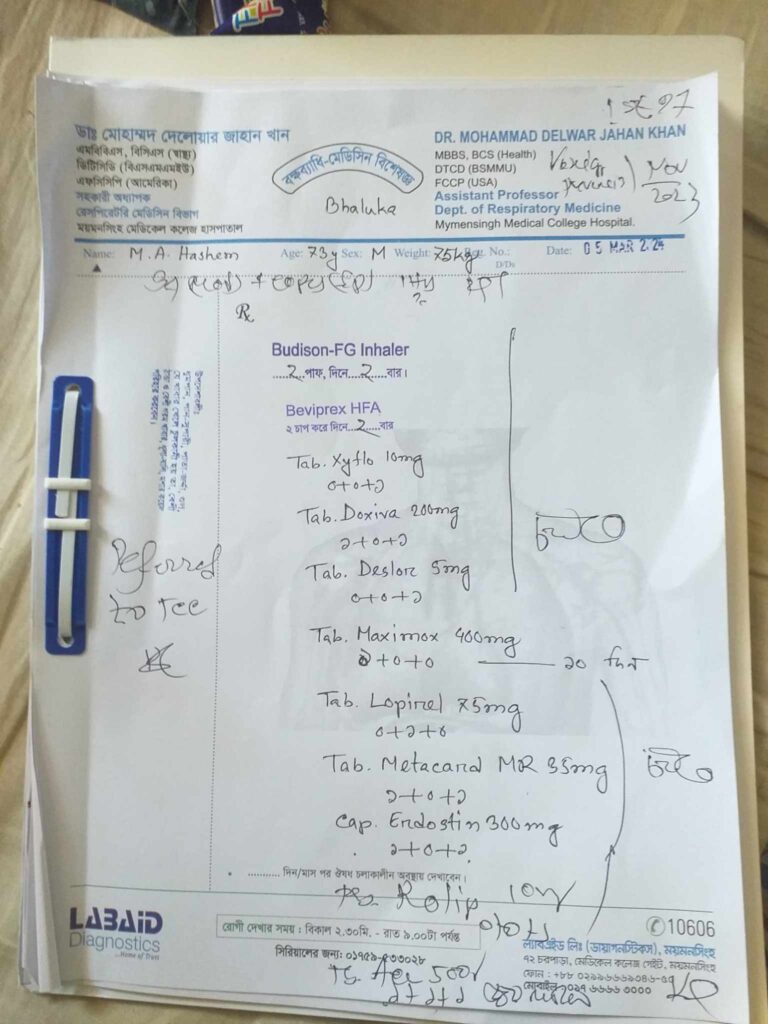 ডাঃ মোহাম্মদ দেলোয়ার জাহান খান
এমবিবিএস, বিসিএস (স্বাস্থ্য)
ডিটিসিডি (বিএসএমএমইউ)
এফসিসিপি (আমেরিকা)
সহকারী অধ্যাপক
রেসপিরেটরি মেডিসিন বিভাগ
ময়মনসিংহ মেডিকেল কলেজ হাসপাতাল
বক্ষব্যাধি-মেডিসিন বিশেষজ্ঞ
Bhaluka
DR. MOHAMMAD DELWAR JAHAN KHAN
MBBS, BCS (Health)
DTCD (BSMMU)
FCCP (USA)
Assistant Professor
Dept. of Respiratory Medicine
Mymensingh Medical College Hospital.
Nov
2023
Name: M.A. Hashem Age: 73y Sex: M Weight: 75kg Reg. No.: Date: 05 MAR 2024
D/Ds
Rx
Budison-FG Inhaler
2 পাফ, দিনে 2 বার।
Beviprex HFA
২ চাপ করে দিনে 2 বার
Tab. Xyflo 10mg
০+০+১
Tab. Doxiva 200mg
১+০+১
Tab. Deslor 5mg
০+০+১
চলবে
Referred
to
Tab. Maximox 400mg
১+০+০ ১০ দিন
Tab. Lopirel 75mg
০+১+০
Tab. Metacard MR 35mg
১+০+১
চলবে
Cap. Endostin 300mg
১+০+১
দিন/মাস পর ঔষধ চলাকালীন অবস্থায় দেখাবেন।
Rolip 10mg
LABAID
Diagnostics
...Home of Trust
রোগী দেখার সময় : বিকাল ২.৩০মি. - রাত ৯.০০টা পর্যন্ত
সিরিয়ালের জন্য: ০১৭৫৯-৫৩৩০২৮
10606
ল্যাবএইড লিঃ (ডায়াগনস্টিকস), ময়মনসিংহ
৭২ চরপাড়া, মেডিকেল কলেজ গেইট, ময়মনসিংহ
ফোন : +৮৮ ০২৯৯৬৬৬৯০৪৬-৫৫
১+১+১